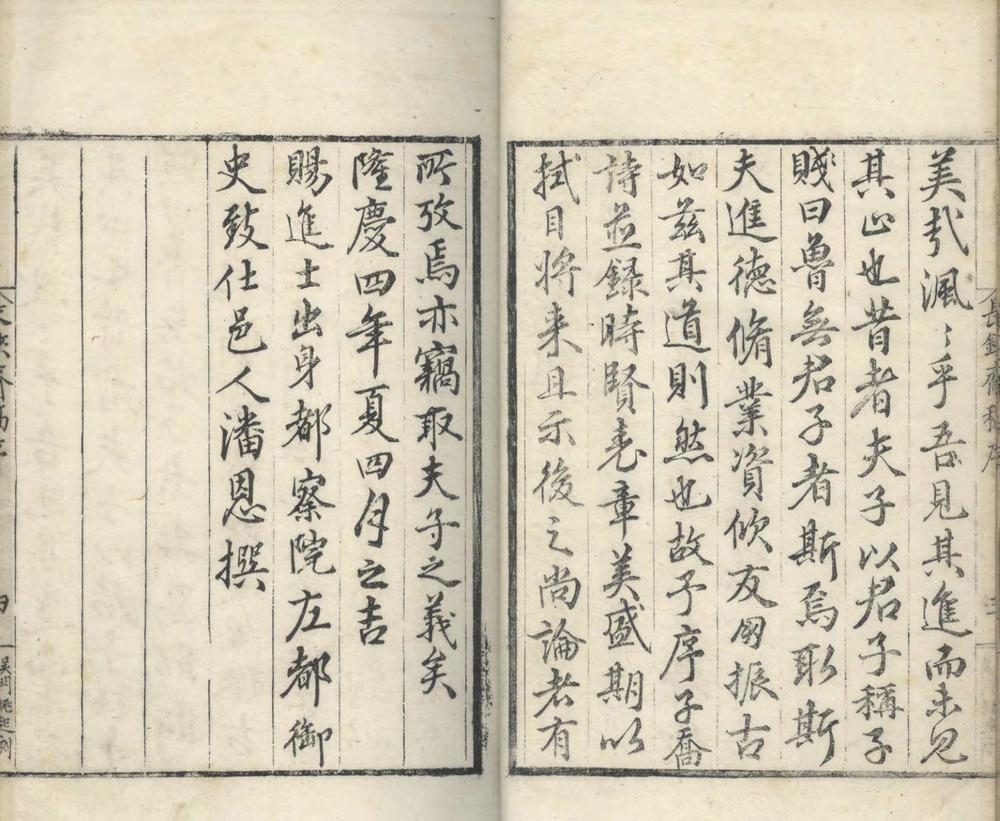 美哉渢〻乎吾見其進而未見
其止也昔者夫子以君子稱子
賤曰魯無君子者斯焉取斯
夫進德脩業資於友困振古
如兹其道則然也故予序子喬
詩並録時賢表章美盛期以
拭目將来且示後之尚論者有
所攷焉亦竊取夫子之義矣
隆慶四年夏四月之吉
賜進士出身都察院左都御
史致仕邑人潘恩撰
四